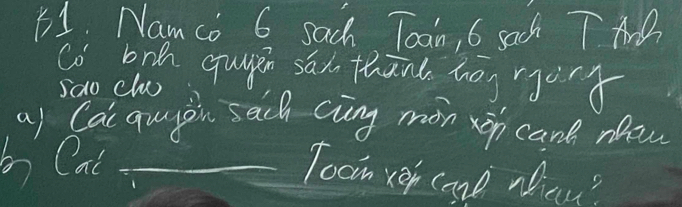 B1. Nam có 6 sách Toán, 6 sách T. Anh
Có bnh quyển sách thành hàng ngang
sao cho
a) Các quyển sách cùng môn xếp cạnh nhau
b) Các ———— Toán xếp cạnh nhau?